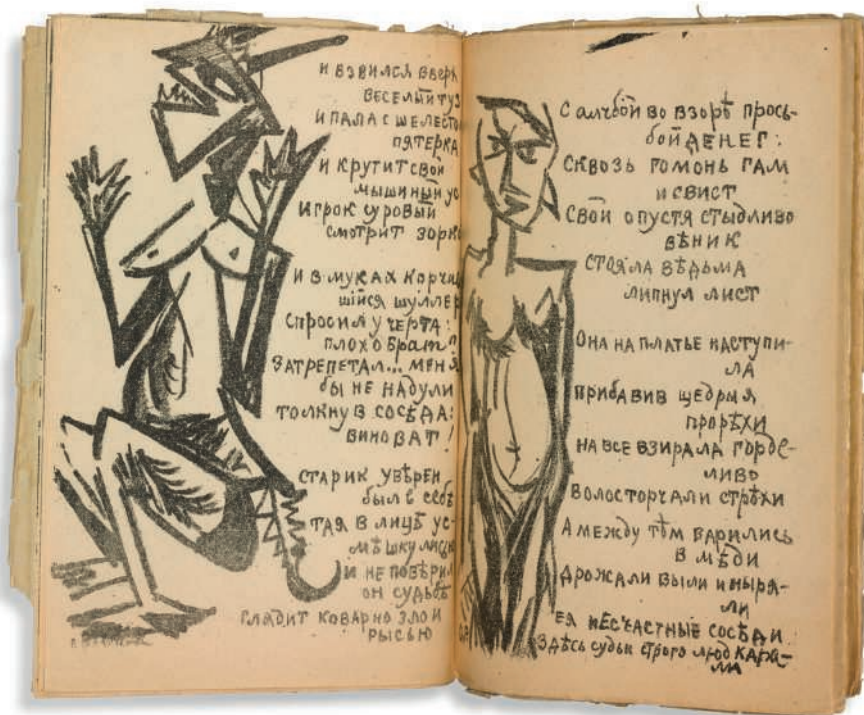 И ВЗВИЛСЯ ВВЕРХ
ВЕСЕЛЫЙ ТУЗ
И ПАЛА С ШЕЛЕСТО
ПЯТЕРКА
И КРУТИТ СВОЙ
МЫШИНЫЙ УС
ИГРОК СУРОВЫЙ
СМОТРИТ ЗОРКО
И В МУКАХ КОРЧИВ
ШІЙСЯ ШУЛЛЕР
СПРОСИЛ У ЧЕРТА:
ПЛОХО БРАТ?
ЗАТРЕПЕТАЛ... МЕНЯ
БЫ НЕ НАДУЛИ
ТОЛКНУВ СОСѢДА:
ВИНОВАТ!
СТАРИК УВѢРЕН
был в себѢ
ТАЯ В ЛИЦѢ УС-
МѢШКУ ЛИСЬЮ
И НЕ ПОВѢРИЛ
ОН СУДЬБѢ
ГЛЯДИТ КОВАРНО ЗЛОЙ
РЫСЬЮ
С АЛЧБОЙ ВО ВЗОРѢ ПРОСЬ-
БОЙ ДЕНЕГ:
СКВОЗЬ ГОМОНЬ ГАМ
И СВИСТ
СВОЙ ОПУСТЯ СТЫДЛИВО
ВѢНИК
СТОЯЛА ВѢДЬМА
ЛИПНУЛ ЛИСТ
ОНА НА ПЛАТЬЕ НАСТУПИ-
ЛА
ПРИБАВИВ ЩЕДРЫЯ
ПРОРѢХИ
НА ВСЕ ВЗИРАЛА ГОРДЕ-
ЛИВО
ВОЛОС ТОРЧАЛИ СТРѢХИ
А МЕЖДУ ТѢМ ВАРИЛИСЬ
В МѢДИ
ДРОЖАЛИ ВЫЛИ И НЫРЯ-
ЛИ
ЕЯ НЕСЧАСТНЫЕ СОСѢДИ
ЗДѢСЬ СУДЬИ СТРОГО ЛЮД КАРА-
ЛИ